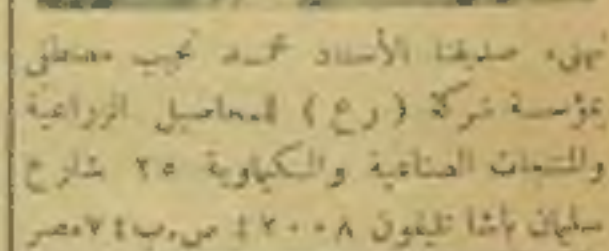 نهنىء صديقنا الأستاذ محمد نجيب مصطفى
بمؤسسة شركة ( رع ) للمحاصيل الزراعية
والمنتجات الصناعية والكيماوية ٢٥ شارع
سليمان باشا تليفون ٤٢٠٠٨ ص.ب ٧٤ مصر